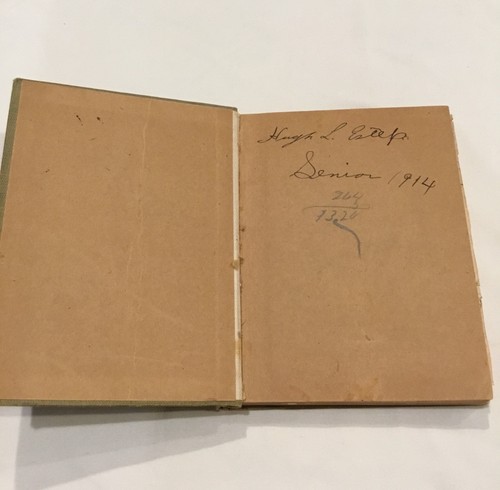 Hugh L. Estep
Senior 1914
264
1320